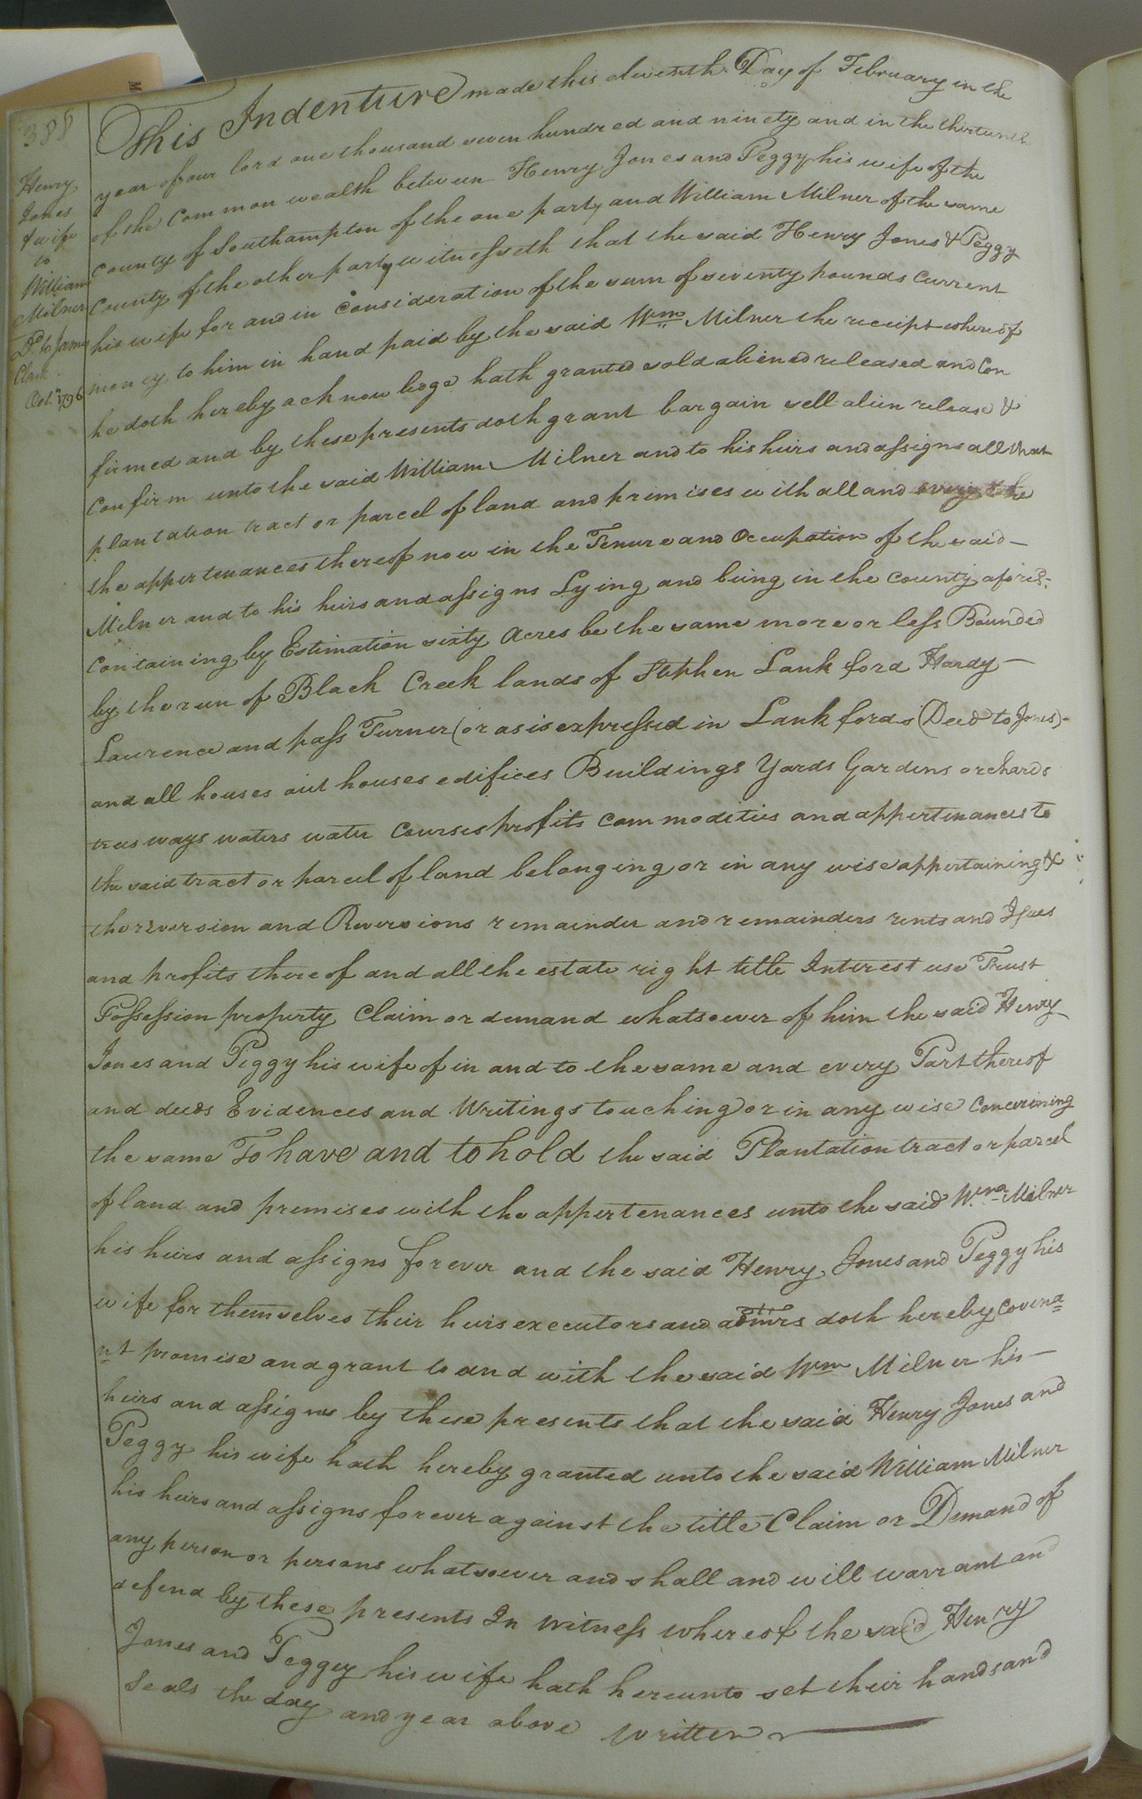 388
Henry
Jones
& wife
to
William
Milner
Dd to James
Clark
Oct. 1796
This Indenture made this eleventh Day of February in the
year of our lord one thousand seven hundred and ninety and in the thirteenth
of the Common wealth between Henry Jones and Peggy his wife of the
County of Southampton of the one party and William Milner of the same
County of the other party witnesseth that the said Henry Jones & Peggy
his wife for and in Consideration of the sum of seventy pounds Current
money to him in hand paid by the said Wm Milner the receipt whereof
he doth hereby acknowledge hath granted sold aliened released and Con
firmed and by these presents doth grant bargain sell alien release &
Confirm unto the said William Milner and to his heirs and assigns all that
plantation tract or parcel of land and premises with all and every the
the appertenances thereof now in the Tenure and Occupation of the said
Milner and to his heirs and assigns Lying and being in the County aforesd.
Containing by Estimation sixty Acres be the same more or less Bounded
by the run of Black Creek lands of Stephen Lankford Hardy
Lawrence and pass Turner (or as is expressed in Lankfords Deed to Jones)
and all houses out houses edifices Buildings Yards Gardens orchards
trees ways waters water Courses profits Commodities and appertenances to
the said tract or parcel of land belonging or in any wise appertaining &
the reversion and Reversions remainder and remainders rents and Issues
and profits thereof and all the estate right title Interest use Trust
Possession property Claim or demand whatsoever of him the said Henry
Jones and Peggy his wife of in and to the same and every Part thereof
and deeds Evidences and Writings touching or in any wise Concerning
the same To have and to hold the said Plantation tract or parcel
of land and premises with the appertenances unto the said Wm Milner
his heirs and assigns forever and the said Henry Jones and Peggy his
wife for themselves their heirs executors and admrs doth hereby Covena
nt promise and grant to and with the said Wm Milner his
heirs and assigns by these presents that the said Henry Jones and
Peggy his wife hath hereby granted unto the said William Milner
his heirs and assigns forever against the title Claim or Demand of
any person or persons whatsoever and shall and will warrant and
defend by these presents In Witness whereof the said Henry
Jones and Peggy his wife hath hereunto set their hands and
Seals the day and year above written